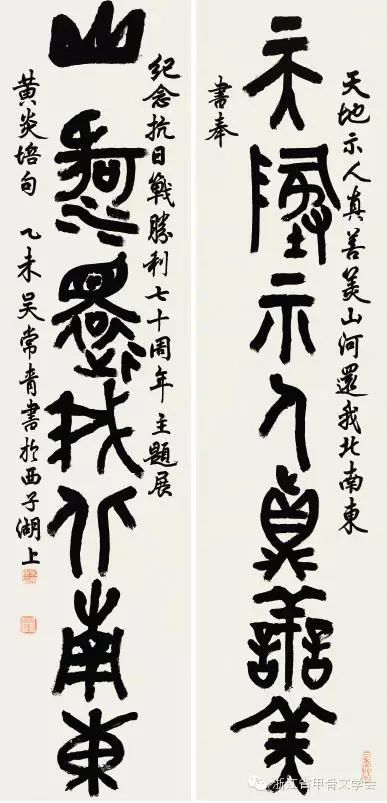 天地示人真善美山河還我北南東
天地示人真善美
書奉
紀念抗日戰勝利七十周年 主題展
山河還我北南東
黄炎培句 乙未吴常青書於西子湖上
浙江省甲骨文学会